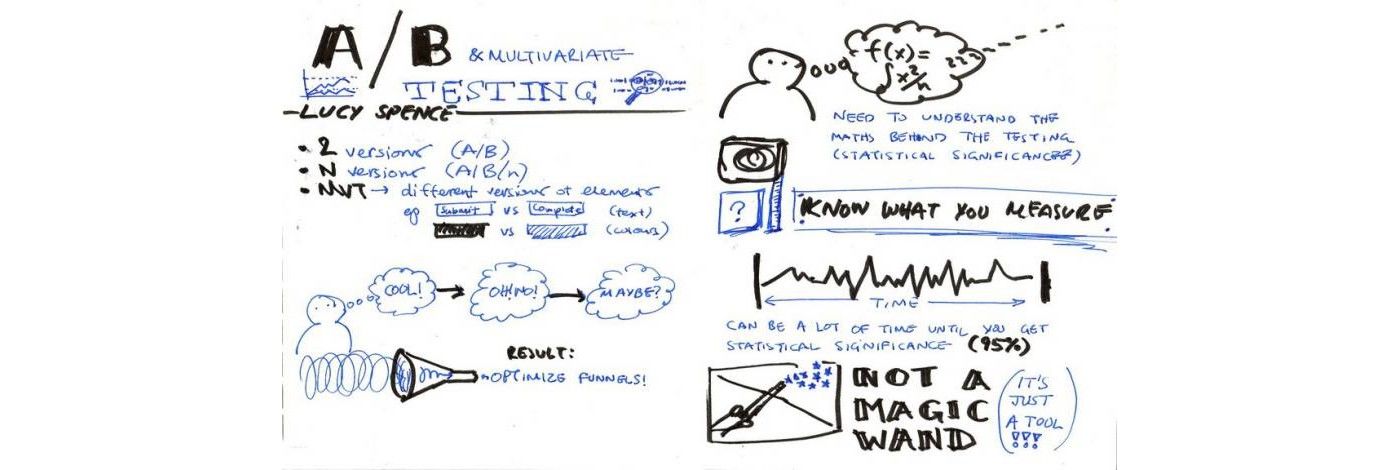 A/B & MULTIVARIATE
TESTING
LUCY SPENCE
• 2 versions (A/B)
• N versions (A/B/n)
• MVT → different versions of elements
eg Submit vs Complete (text)
vs (colours)
COOL! → OH NO! → MAYBE?
RESULT:
→ OPTIMIZE FUNNELS!
f(x)=
∫x²/n
???
NEED TO UNDERSTAND THE
MATHS BEHIND THE TESTING
(STATISTICAL SIGNIFICANCE)
?
KNOW WHAT YOU MEASURE
TIME
CAN BE A LOT OF TIME UNTIL YOU GET
STATISTICAL SIGNIFICANCE (95%)
NOT A
MAGIC
WAND
(IT'S
JUST
A TOOL
!!!)